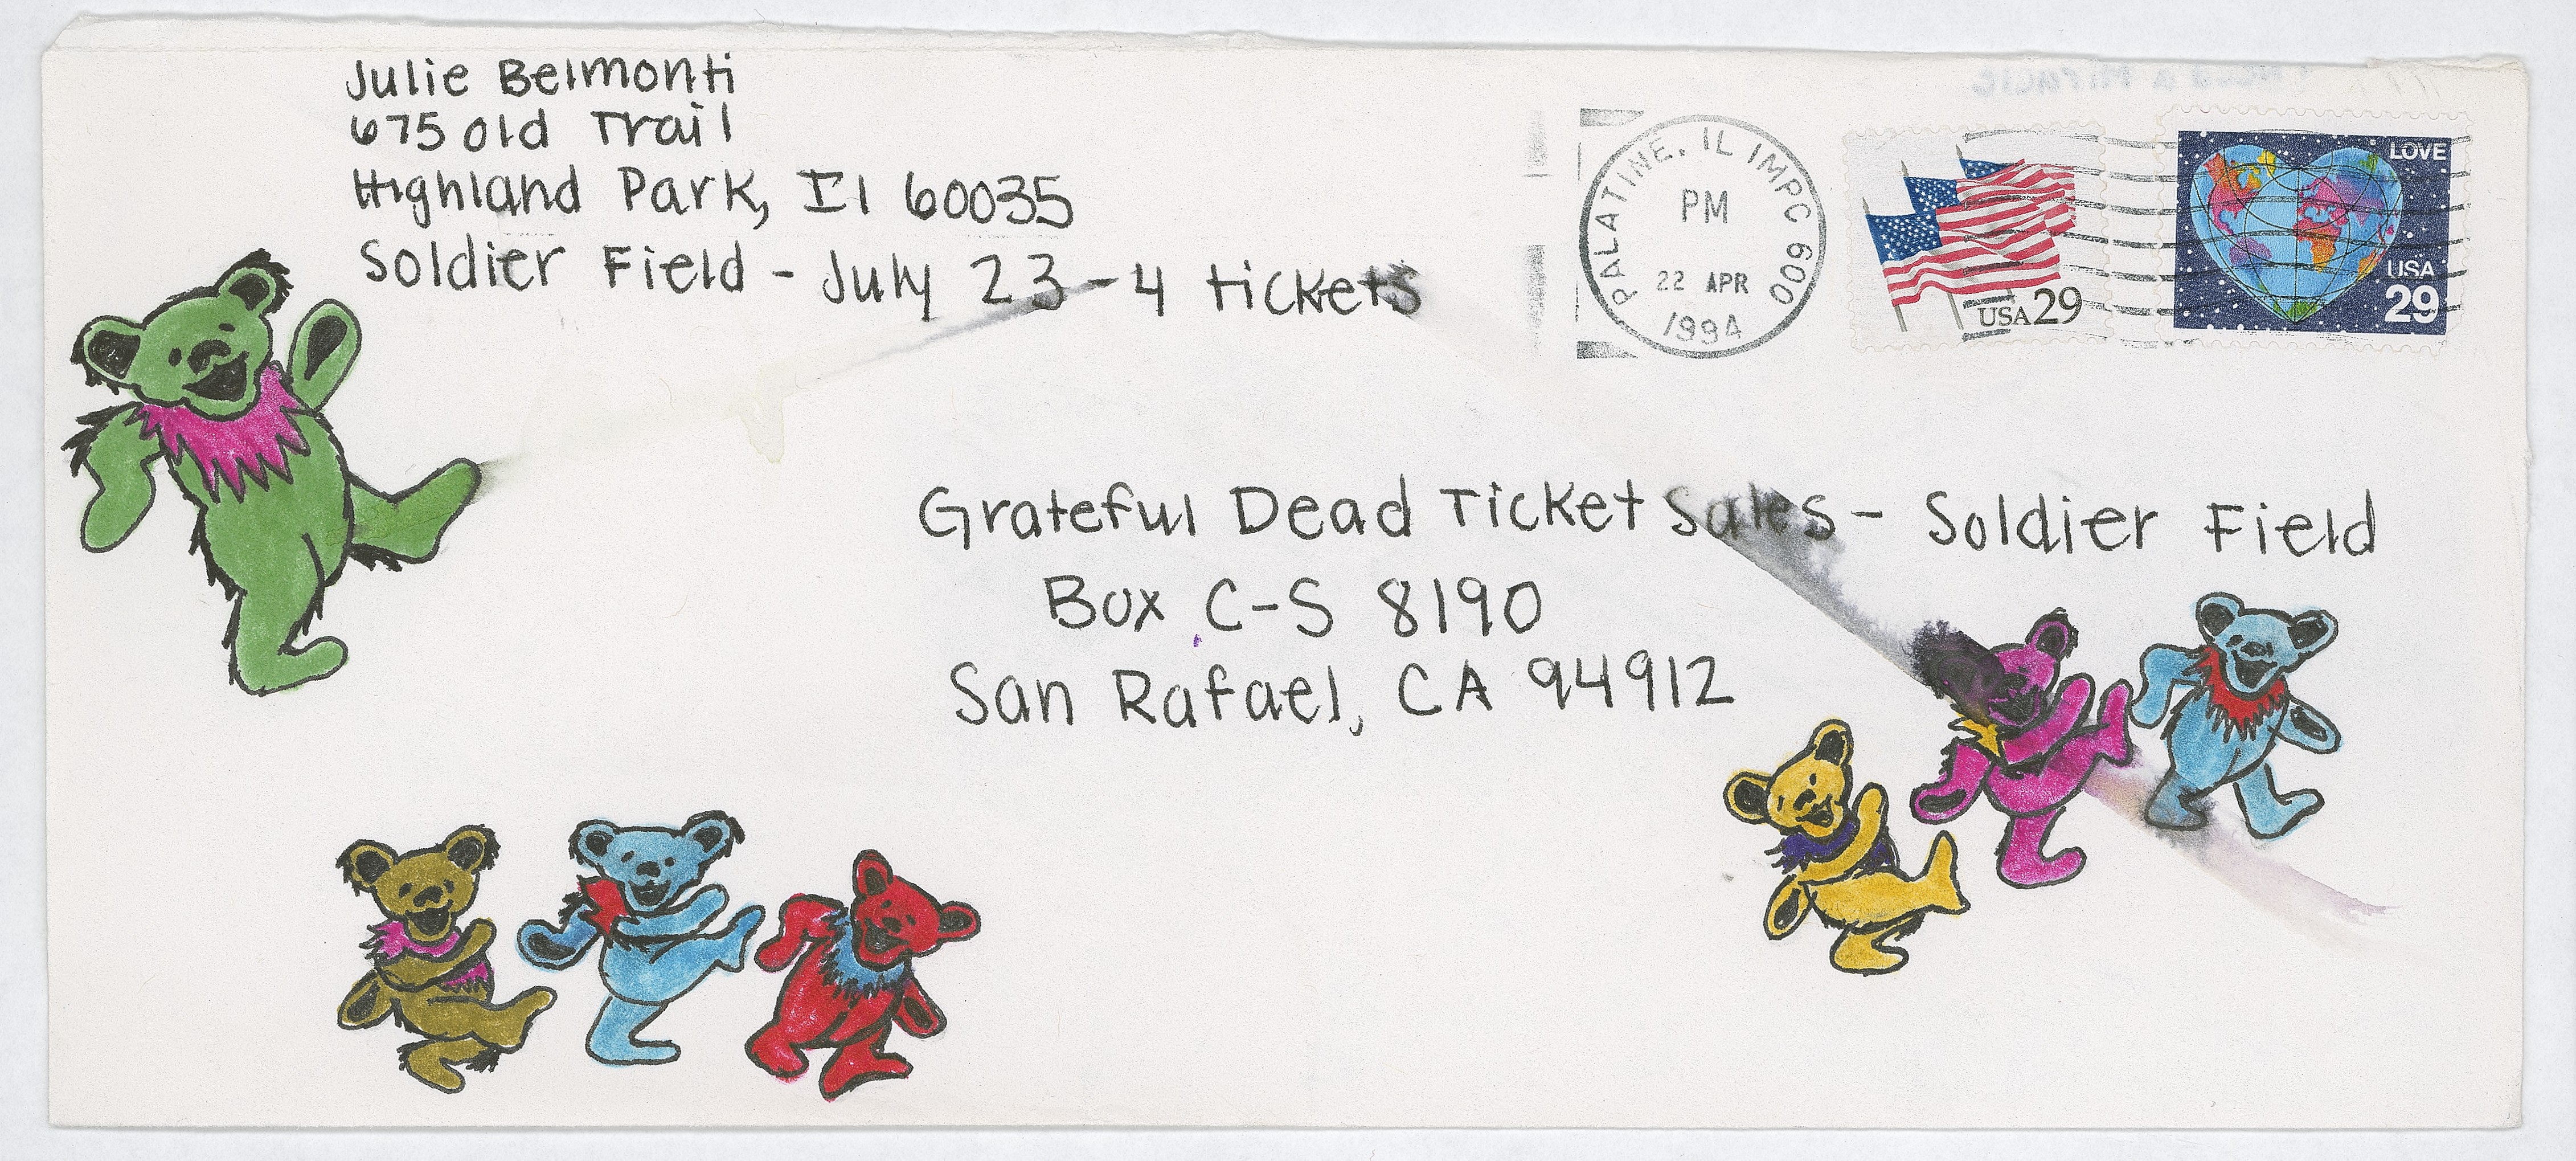 Julie Belmonti
675 Old Trail
Highland Park, Il 60035
Soldier Field - July 23 - 4 tickets
PALATINE, IL IMPC 600
PM
22 APR
1994
USA 29
LOVE
USA
29
Grateful Dead Ticket Sales - Soldier Field
Box C-S 8190
San Rafael, CA 94912